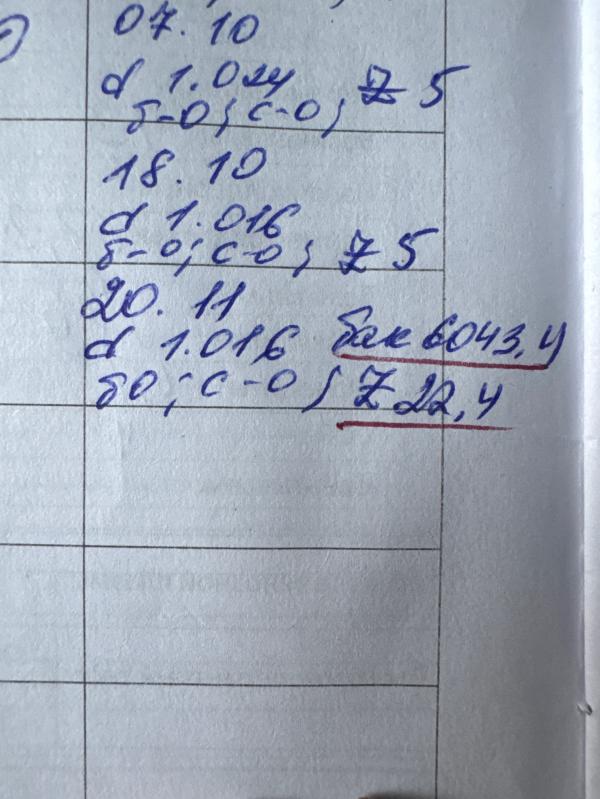 07. 10
d 1.024 Z 5
б-0; с-0;
18. 10
d 1.016
б-0; с-0; Z 5
20. 11
d 1.016 бак 6043,4
б0; с-0; Z 22,4